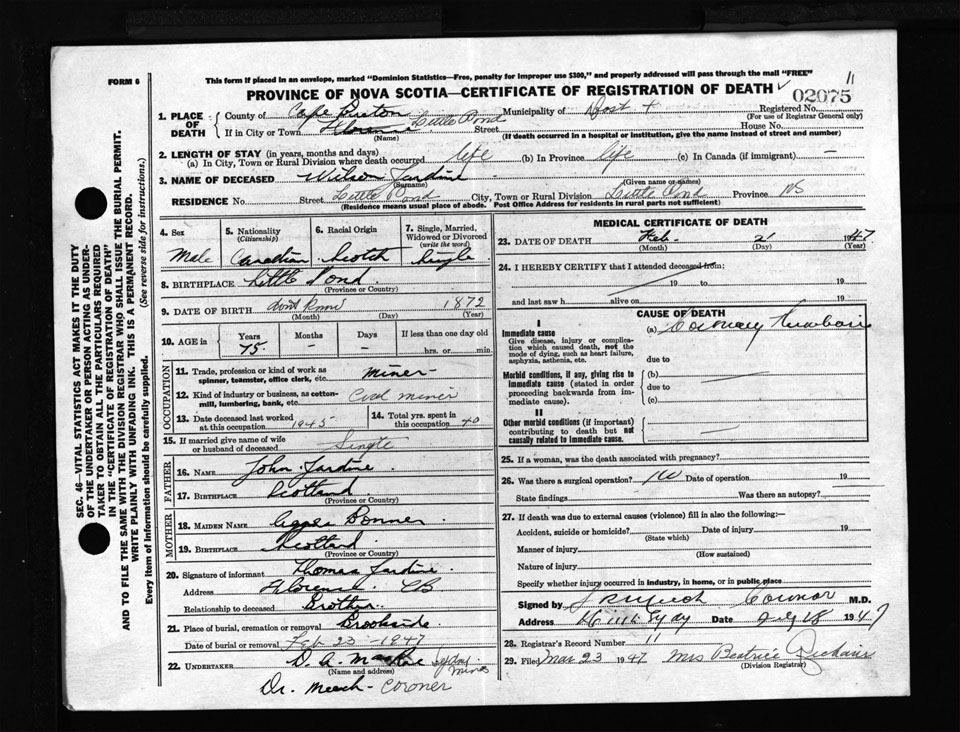 FORM 6
This form if placed in an envelope, marked "Dominion Statistics—Free, penalty for improper use $300," and properly addressed will pass through the mail "FREE"
11
PROVINCE OF NOVA SCOTIA—CERTIFICATE OF REGISTRATION OF DEATH
02075
1. PLACE OF DEATH
County of Cape Breton Municipality of Registered No.
(For use of Registrar General only)
If in City or Town Florence Little Pond Street House No.
(Name) (If death occurred in a hospital or institution, give the name instead of street and number)
2. LENGTH OF STAY (in years, months and days)
(a) In City, Town or Rural Division where death occurred life (b) In Province life (c) In Canada (if immigrant) —
3. NAME OF DECEASED Wilson Jardine
(Surname) (Given name or names)
RESIDENCE No. Street Little Pond City, Town or Rural Division Little Pond Province NS
(Residence means usual place of abode. Post Office Address for residents in rural parts not sufficient)
4. Sex Male
5. Nationality (Citizenship) Canadian
6. Racial Origin Scotch
7. Single, Married, Widowed or Divorced (write the word) Single
8. BIRTHPLACE Little Pond
(Province or Country)
9. DATE OF BIRTH Dont Know 1872
(Month) (Day) (Year)
10. AGE in Years 75 Months Days If less than one day old hrs. or min.
OCCUPATION
11. Trade, profession or kind of work as spinner, teamster, office clerk, etc. Miner
12. Kind of industry or business, as cotton-mill, lumbering, bank, etc. Coal miner
13. Date deceased last worked at this occupation 1945
14. Total yrs. spent in this occupation 40
15. If married give name of wife or husband of deceased Single
FATHER
16. NAME John Jardine
17. BIRTHPLACE Scotland
(Province or Country)
MOTHER
18. MAIDEN NAME Bonner
19. BIRTHPLACE Scotland
(Province or Country)
20. Signature of informant Thomas Jardine
Address Florence CB
Relationship to deceased Brother
21. Place of burial, cremation or removal Brookside
Date of burial or removal Feb 23 - 1947
22. UNDERTAKER D. A. Sydney Mines
(Name and address)
Dr. Meech - Coroner
MEDICAL CERTIFICATE OF DEATH
23. DATE OF DEATH Feb 21 1947
(Month) (Day) (Year)
24. I HEREBY CERTIFY that I attended deceased from:
19 to 19
and last saw h alive on 19
CAUSE OF DEATH
I
Immediate cause
Give disease, injury or complication which caused death, not the mode of dying, such as heart failure, asphyxia, asthenia, etc.
(a) Coronary Thrombosis
due to
Morbid conditions, if any, giving rise to immediate cause (stated in order proceeding backwards from immediate cause).
(b)
due to
(c)
II
Other morbid conditions (if important) contributing to death but not causally related to immediate cause.
25. If a woman, was the death associated with pregnancy?
26. Was there a surgical operation? no Date of operation 19
State findings Was there an autopsy?
27. If death was due to external causes (violence) fill in also the following:—
Accident, suicide or homicide? Date of injury 19
(State which)
Manner of injury
(How sustained)
Nature of injury
Specify whether injury occurred in industry, in home, or in public place
Signed by Meech Coroner M.D.
Address Date 18 1947
28. Registrar's Record Number 11
29. Filed Mar 23 1947 Mrs Beatrice
(Division Registrar)
SEC. 46—VITAL STATISTICS ACT MAKES IT THE DUTY
OF THE UNDERTAKER OR PERSON ACTING AS UNDER-
TAKER TO OBTAIN ALL THE PARTICULARS REQUIRED
IN THE "CERTIFICATE OF REGISTRATION OF DEATH"
AND TO FILE THE SAME WITH THE DIVISION REGISTRAR WHO SHALL ISSUE THE BURIAL PERMIT.
WRITE PLAINLY WITH UNFADING INK. THIS IS A PERMANENT RECORD.
Every item of Information should be carefully supplied. (See reverse side for instructions.)